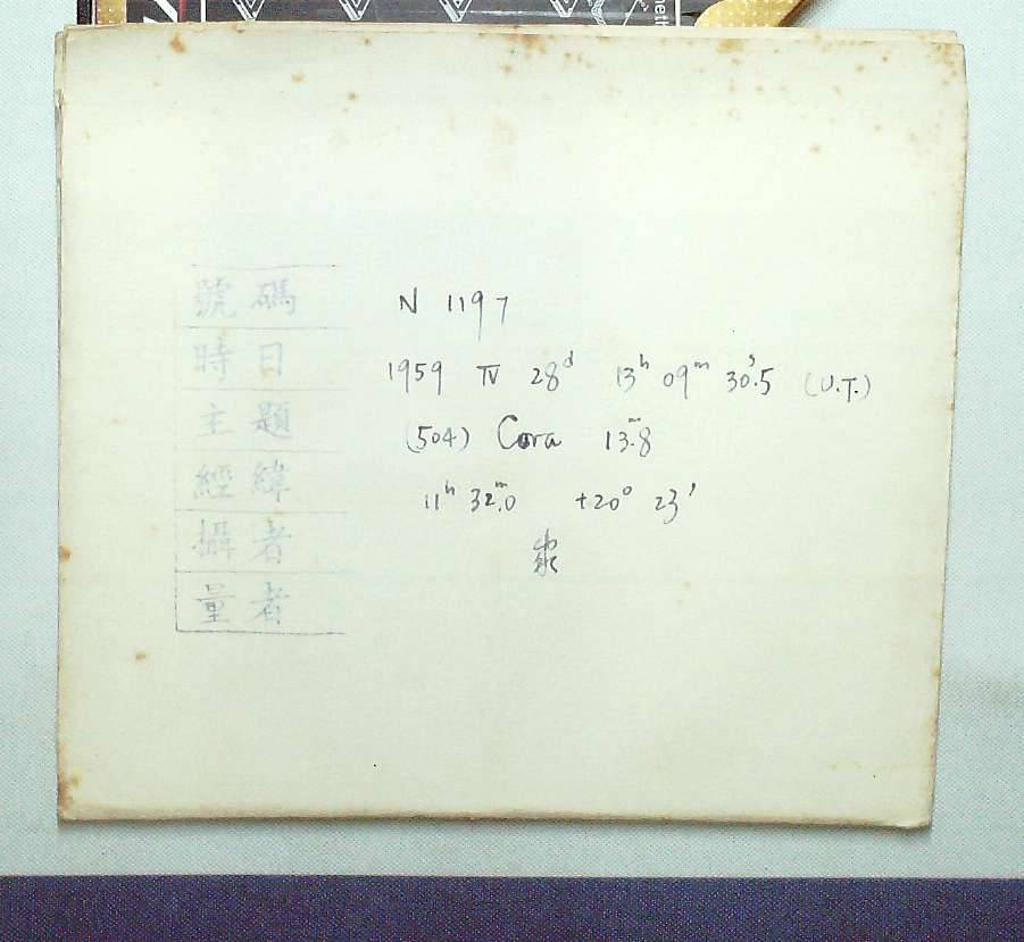 號碼 N 1197
時日 1959 IV 28ᵈ 13ʰ 09ᵐ 30ˢ.5 (U.T.)
主題 (504) Cora 13ᵐ.8
經緯 11ʰ 32ᵐ.0 +20° 23'
攝者
量者